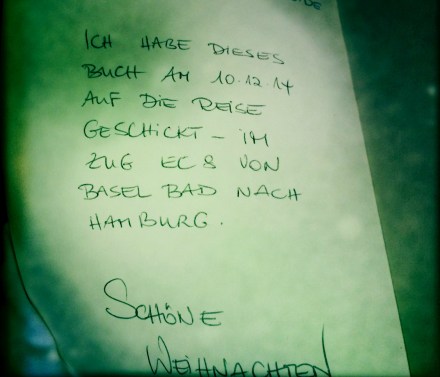 ICH HABE DIESES
BUCH AM 10.12.14
AUF DIE REISE
GESCHICKT – IM
ZUG EC 8 VON
BASEL BAD NACH
HAMBURG.
SCHÖNE
WEIHNACHTEN